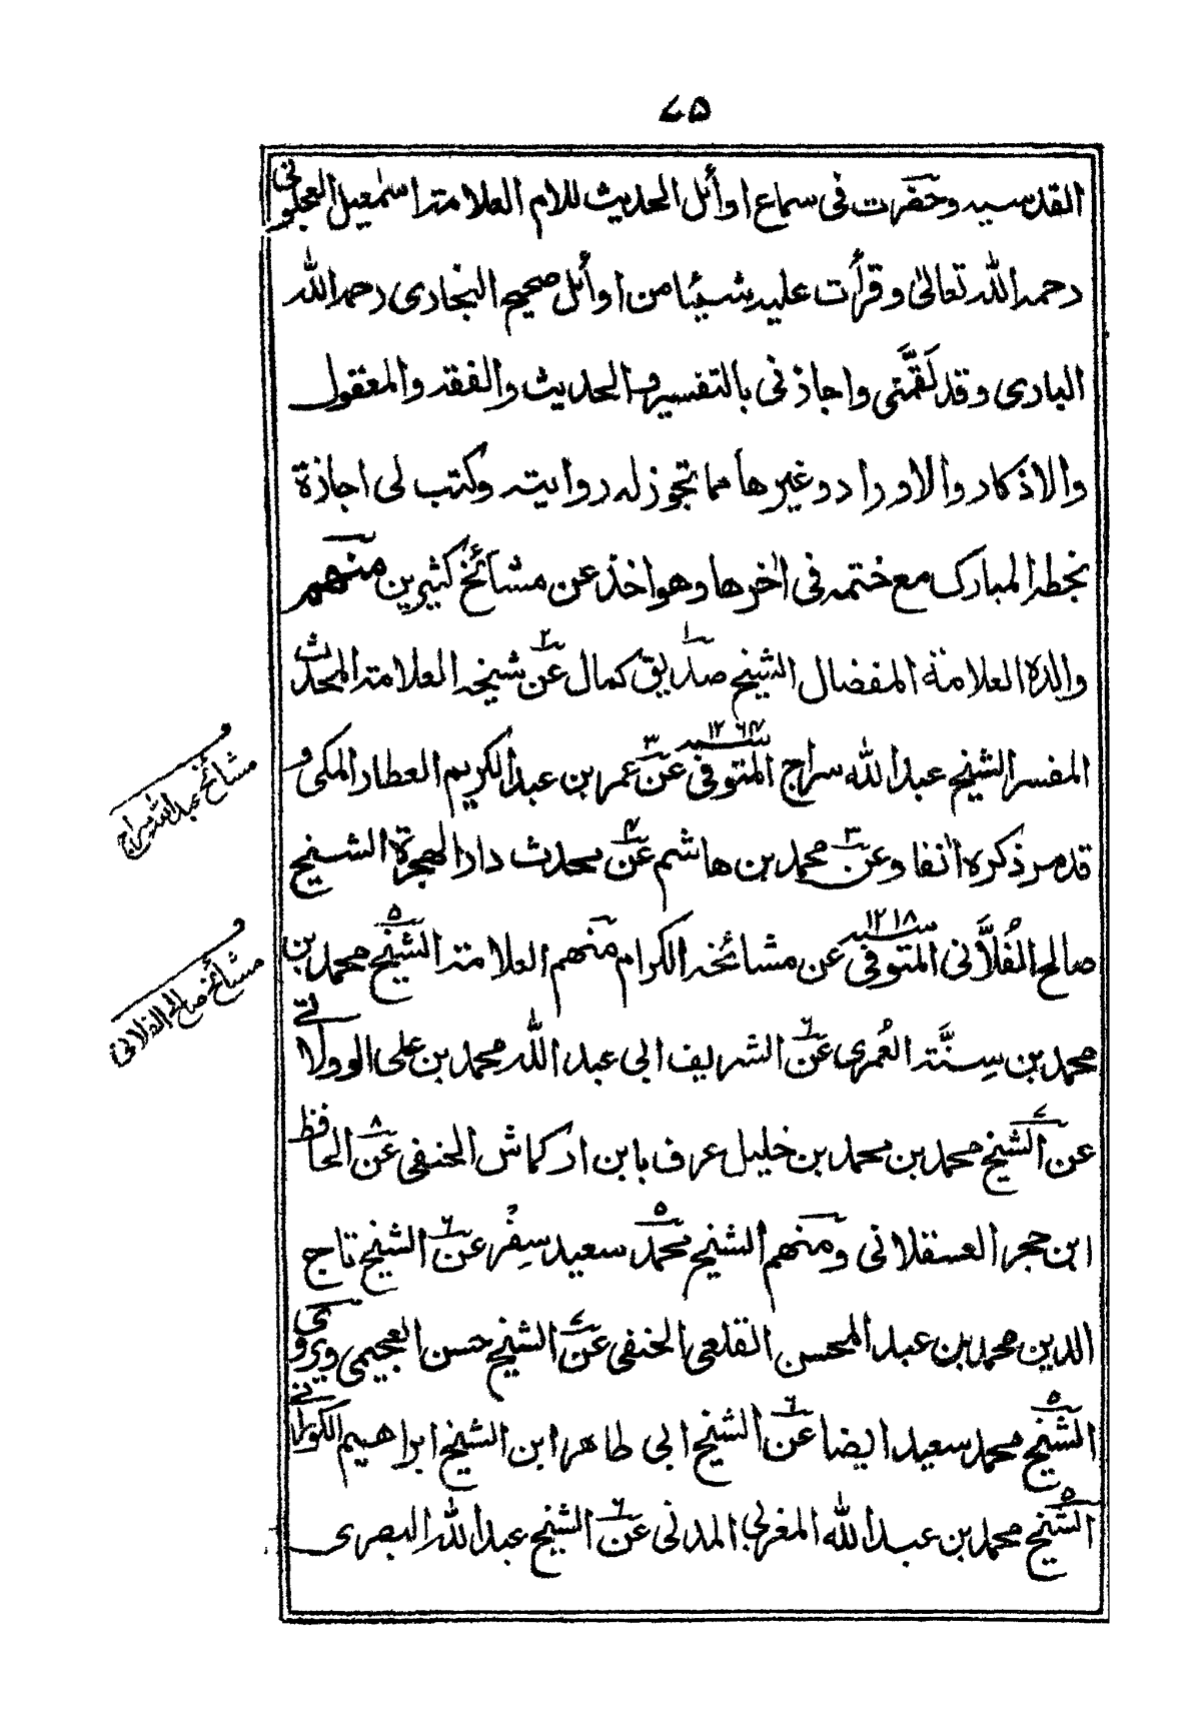 ٧٥
القدسیه وحضرت فی سماع اوأئل الحدیث للامام العلامة اسمٰعیل العجلونی
رحمه الله تعالیٰ وقرأت علیه شیئا من اوأئل صحیح البخاری رحمه الله
الباری وقد لَقَّمَنی واجازنی بالتفسیر والحدیث والفقه والمعقول
والاذکار والاوراد وغیرها مما تجوز له روایته وکتب لی اجازة
بخطه المبارک مع ختمه فی اٰخرها وهو اخذ عن مشائخ کثیرین منهم
والده العلامة المفضال الشیخ صدیق١ کمال عن٢ شیخه العلامة المحدث
المفسر الشیخ عبد الله سراج المتوفی سنه ١٢٦٤ عن٣ عمر بن عبد الکریم العطار المکی و
قد مر ذکره اٰنفا وعن٣ محمد بن هاشم عن٤ محدث دار الهجرة الشیخ
صالح الفُلاَّنی المتوفی سنه ١٢١٨ عن مشائخه الکرام منهم العلامة الشیخ٥ محمد بن
محمد بن سِنَّة العُمری عن٦ الشریف ابی عبد الله محمد بن علی الوولاتی
عن الشیخ٧ محمد بن محمد بن خلیل عرف بابن ارکماش الحنفی عن٨ الحافظ
ابن حجر العسقلانی ومنهم الشیخ محمد٥ سعید سِفُر عن٦ الشیخ تاج
الدین محمد بن عبد المحسن القلعی الحنفی عن٧ الشیخ حسن العجیمی ویروی
الشیخ٥ محمد سعید ایضا عن٦ الشیخ ابی طاهر ابن الشیخ ابراهیم الکورانی
الشیخ٥ محمد بن عبد الله المغربی المدنی عن٦ الشیخ عبد الله البصری
مشائخ عبد الله سراج
مشائخ صالح الفلانی